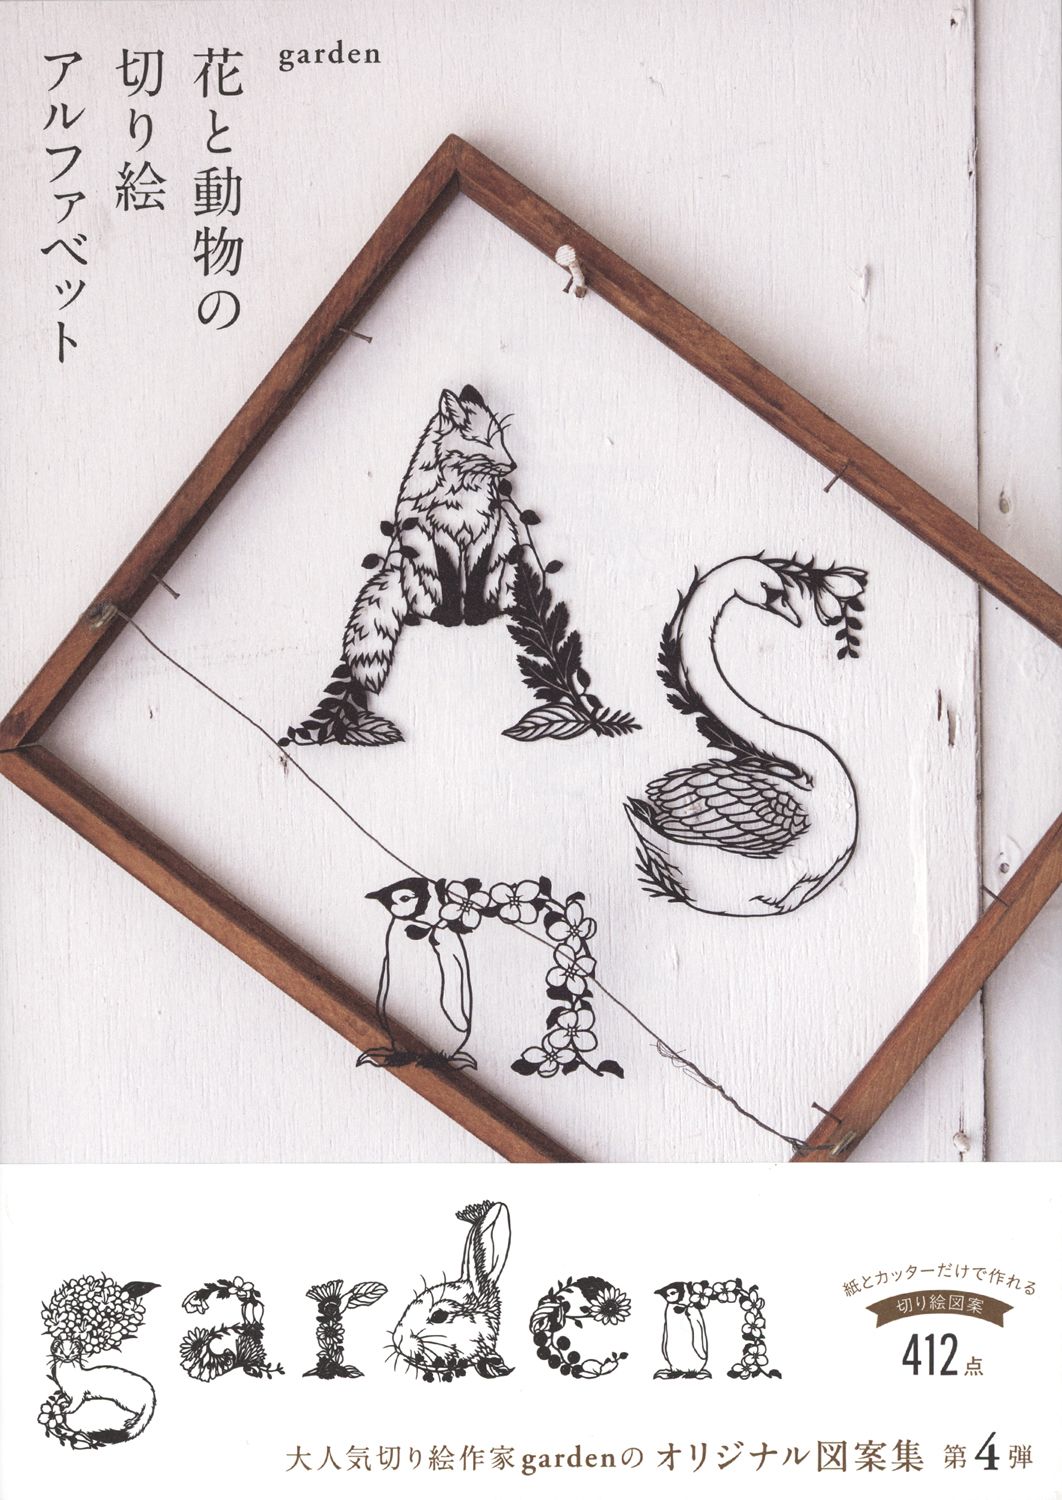 garden
花と動物の
切り絵
アルファベット
A
S
n
garden
紙とカッターだけで作れる
切り絵図案
412点
大人気切り絵作家gardenのオリジナル図案集 第4弾